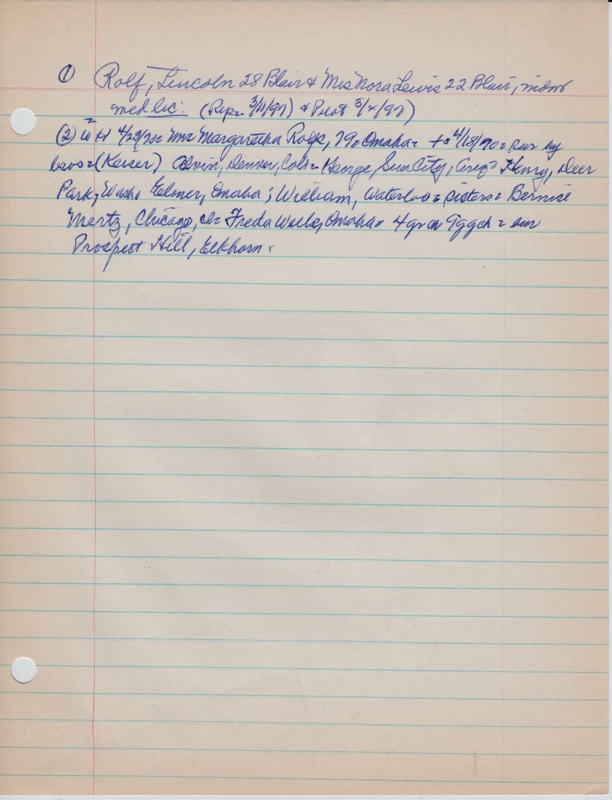 ① Rolf, Lincoln 28 Blair & Mrs Nora Lewis 22 Blair,
med lic. (Rep= 3/11/97) &
(2) 4/23/70= Mrs Margaretha Rolf, 79= Omaha= + = 4/18/70= sur by
bros= (Keiser) Alvin, Denver, Colo= George, Sun City, Henry, Deer
Park, Wash= Elmer, Omaha; William, Waterloo= sisters= Bernice
Mertz, Chicago, Freda Omaha= 4 gr ch 9 ggch=
Prospect Hill, Elkhorn.